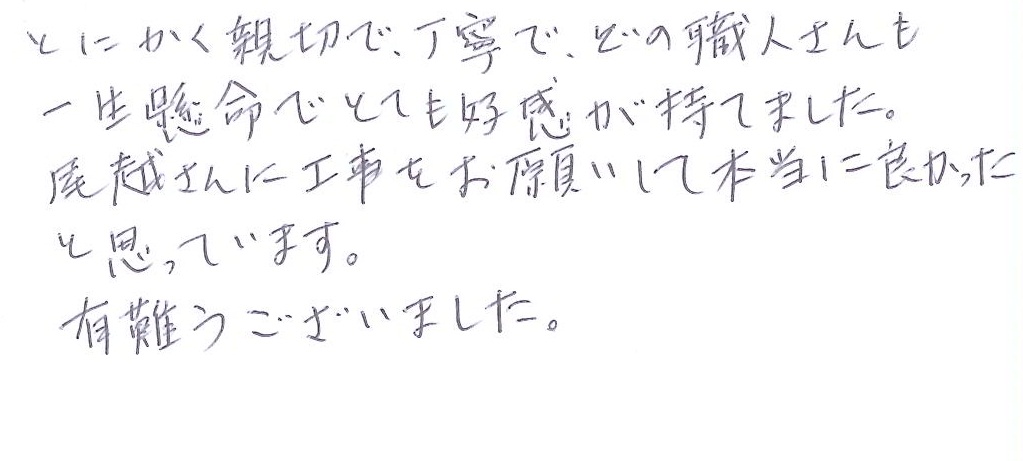 とにかく親切で、丁寧で、どの職人さんも
一生懸命でとても好感が持てました。
尾越さんに工事をお願いして本当に良かった
と思っています。
有難うございました。